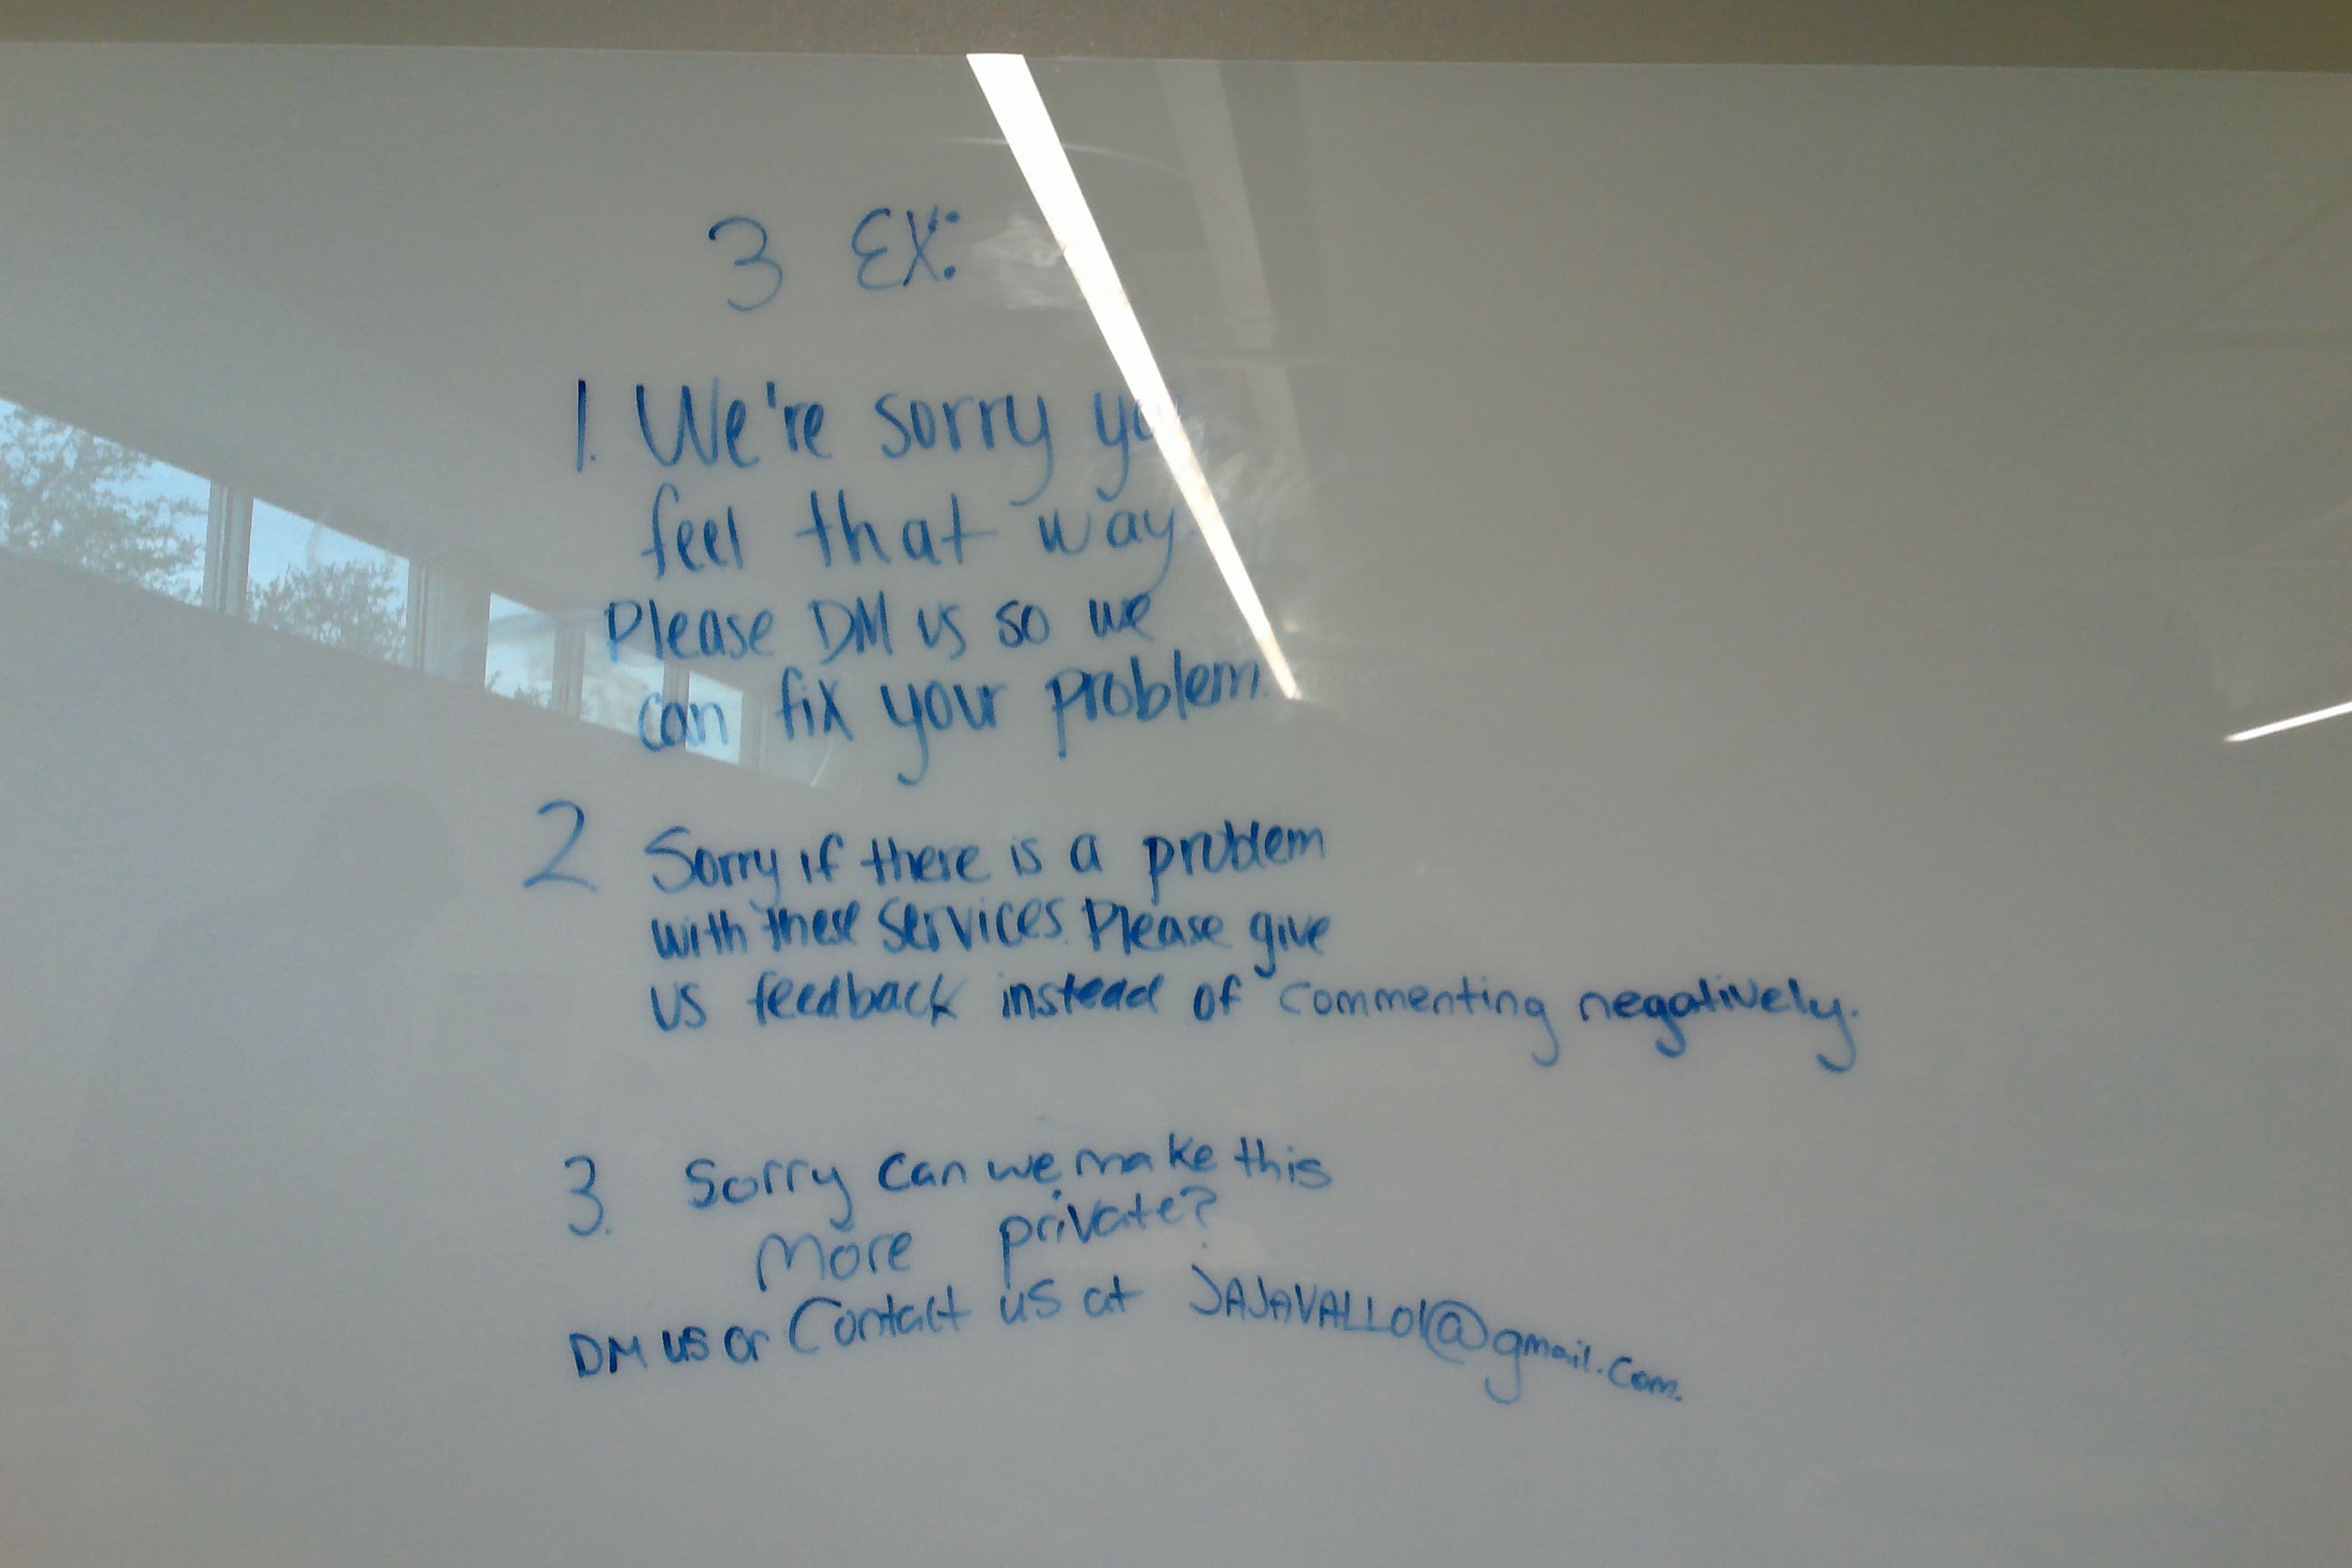 3 EX:
1. We're sorry you
feel that way.
Please DM us so we
can fix your problem.
2. Sorry if there is a problem
with these services. Please give
us feedback instead of commenting negatively.
3. Sorry can we make this
more private?
DM us or Contact us at JAJAVALLO1@gmail.com.